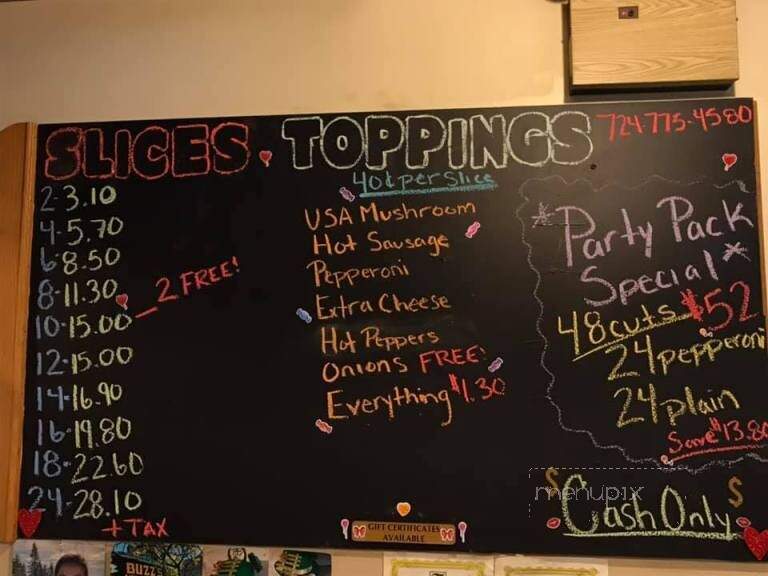 SLICES
2-3.10
4-5.70
6-8.50
8-11.30
10-15.00 2 FREE!
12-15.00
14-16.90
16-19.80
18-22.60
24-28.10
+ TAX
TOPPINGS
40¢ per Slice
USA Mushroom
Hot Sausage
Pepperoni
Extra Cheese
Hot Peppers
Onions FREE!
Everything $1.30
GIFT CERTIFICATES
AVAILABLE
724-775-4580
*Party Pack
Special*
48 cuts $52
24 pepperoni
24 plain
Save $13.80
menupix
$ Cash Only $
BUZZ